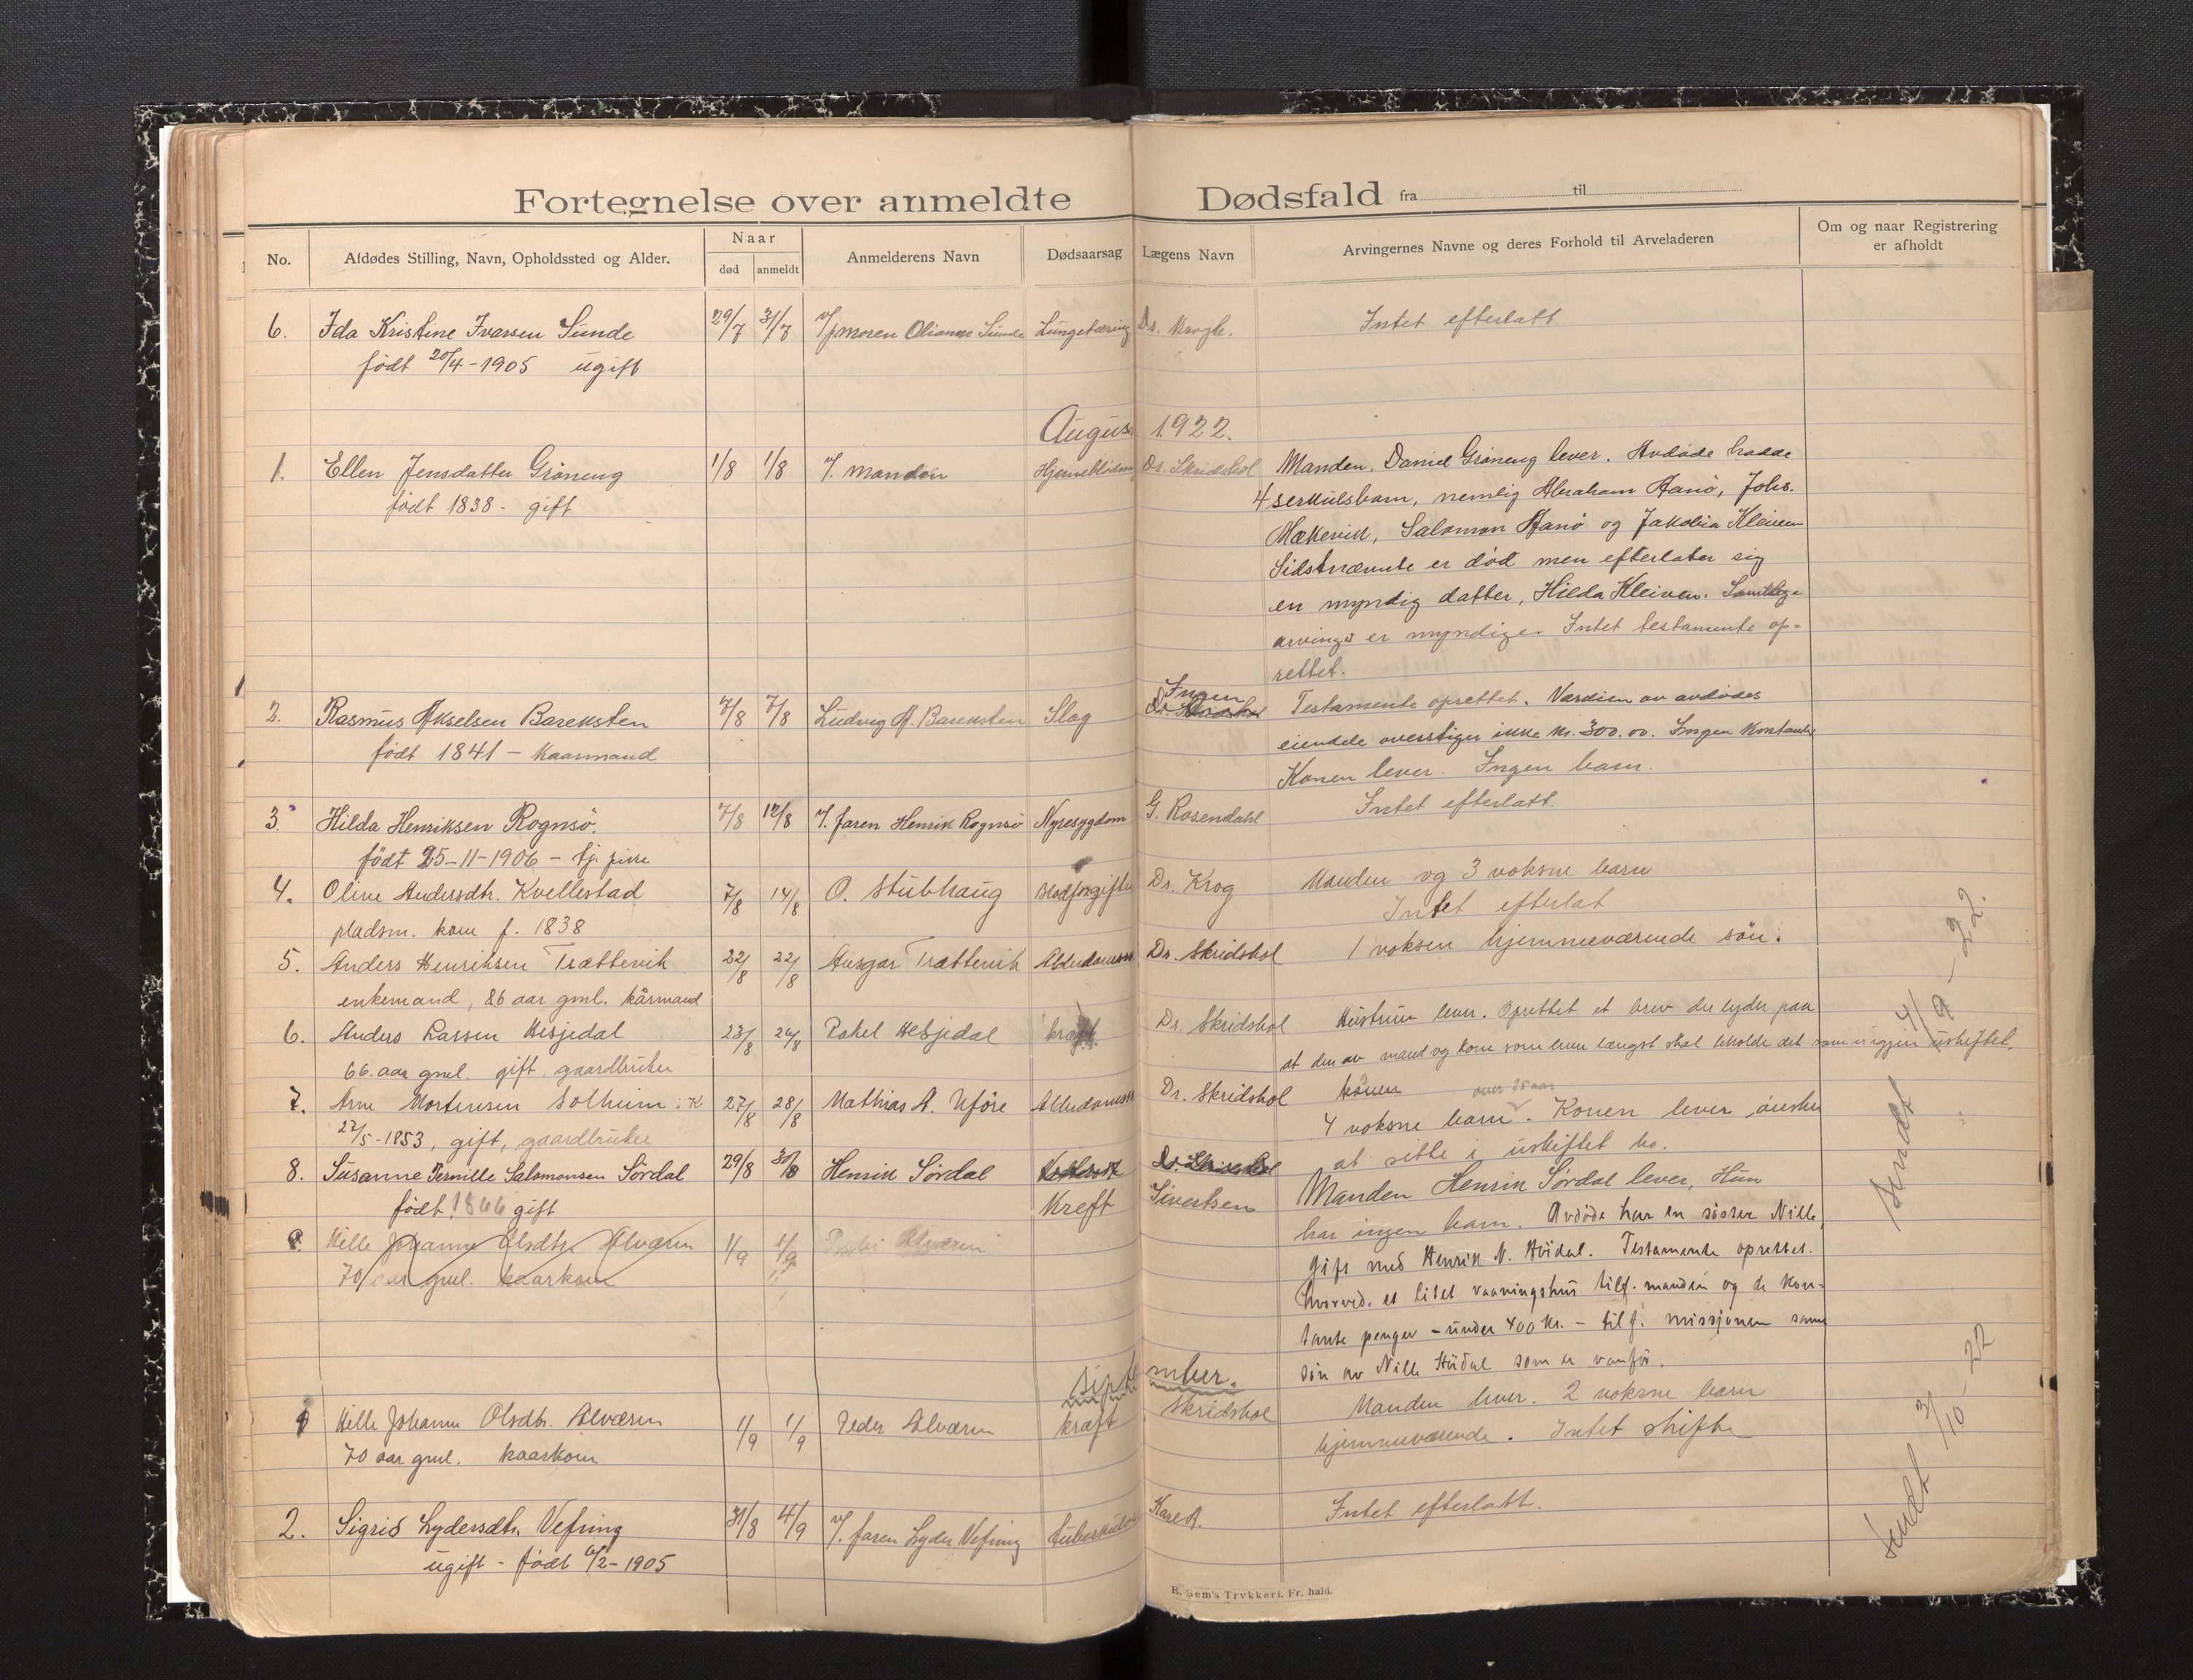 Fortegnelse over anmeldte Dødsfald fra til
No. Afdødes Stilling, Navn, Opholdssted og Alder. Naar død anmeldt Anmelderens Navn Dødsaarsag Lægens Navn Arvingernes Navne og deres Forhold til Arveladeren Om og naar Registrering er afholdt
6. Ida Kristine Ivarsen Sunde 29/7 31/7 v/ moren Olianne Sunde Lungetæring Dr. Krogh. Intet efterlatt
født 20/4-1905 ugift
August 1922.
1. Ellen Jensdatter Gröneng 1/8 1/8 v/. manden Hjerneblödn Dr. Skridshol Manden, Daniel Gröneng lever. Avdöde hadde
født 1838 - gift 4 serkulsbarn, nemlig Abraham Hanö, Johs.
Mækevik, Salomon Hanö og Jakobia Kleiven
Sidstnævnte er död men efterlater sig
en myndig datter, Hilda Kleiven. Samtlige
arvinger er myndige. Intet testamente op-
rettet.
2. Rasmus Akselsen Bareksten 7/8 7/8 Ludvig A. Bareksten Slag Ingen Testamente oprettet. Værdien av avdödes
født 1841 - Kaarmand eiendele overstiger ikke kr. 300.00. Ingen Kontanter
Konen lever. Ingen barn.
3. Hilda Henriksen Rognsö. 7/8 12/8 v/. faren Henrik Rognsö Nyresygdom G. Rosendahl Intet efterlatt.
født 25-11-1906 - tj. pike
4. Oline Andersdtr. Kvellestad 7/8 14/8 O. Stubhaug Blodforgiftn Dr. Krog Manden og 3 voksne barn
pladsm. kone f. 1838 Intet efterlat
5. Anders Henriksen Trættevik 22/8 22/8 Ansgar Trættevik Alderdomssv Dr. Skridshol 1 voksen hjemmeværende sön.
enkemand, 86 aar gml. kårmand
6. Anders Larsen Hesjedal 23/8 24/8 Rakel Hesjedal kræft Dr. Skridshol Hustruen lever. Oprettet et brev der lyder paa
66 aar gml. gift gaardbruker at den av mand og kone som lever længst skal beholde det som er igjen uskiftet.
7. Arne Mortensen Solheim : K 27/8 28/8 Mathias A. Uföre Alderdomssv Dr. Skridshol konen over 25 aar
27/5-1853, gift, gaardbruker 4 voksne barn. Konen lever önsker
at sitte i uskiftet bo.
8. Susanne Pernille Salomonsen Sördal 29/8 30/8 Henrik Sördal Kreft Sivertsen Manden Henrik Sördal lever, Hun
født 1846 gift har ingen barn. Avdöde har en söster Nille,
gift med Henrik N. Avidal. Testamente oprettet.
hvorved. et litet vaaningshus tilf. manden og de kon-
tante penger - under 400 kr. - tilf. missjonen samt
sön av Nille som er vanför.
9. Nille Johanne Olsdtr. Alværn 1/9 1/9 Alværn
70 aar gml. kaarkone
September.
1 Nille Johanne Olsdtr. Alværn 1/9 1/9 Peder Alværn kræft Skridshol Manden lever. 2 voksne barn
70 aar gml. kaarkone hjemmeværende. Intet skifte
2. Sigrid Lydersdtr. Vefring 31/8 4/9 v/. faren Lyder Vefring tuberkulos KareA. Intet efterlatt.
ugift - født 6/2-1905
Sendt 4/9-22.
Sendt 3/10-22
E. Sem's Trykkeri. Fr. hald.